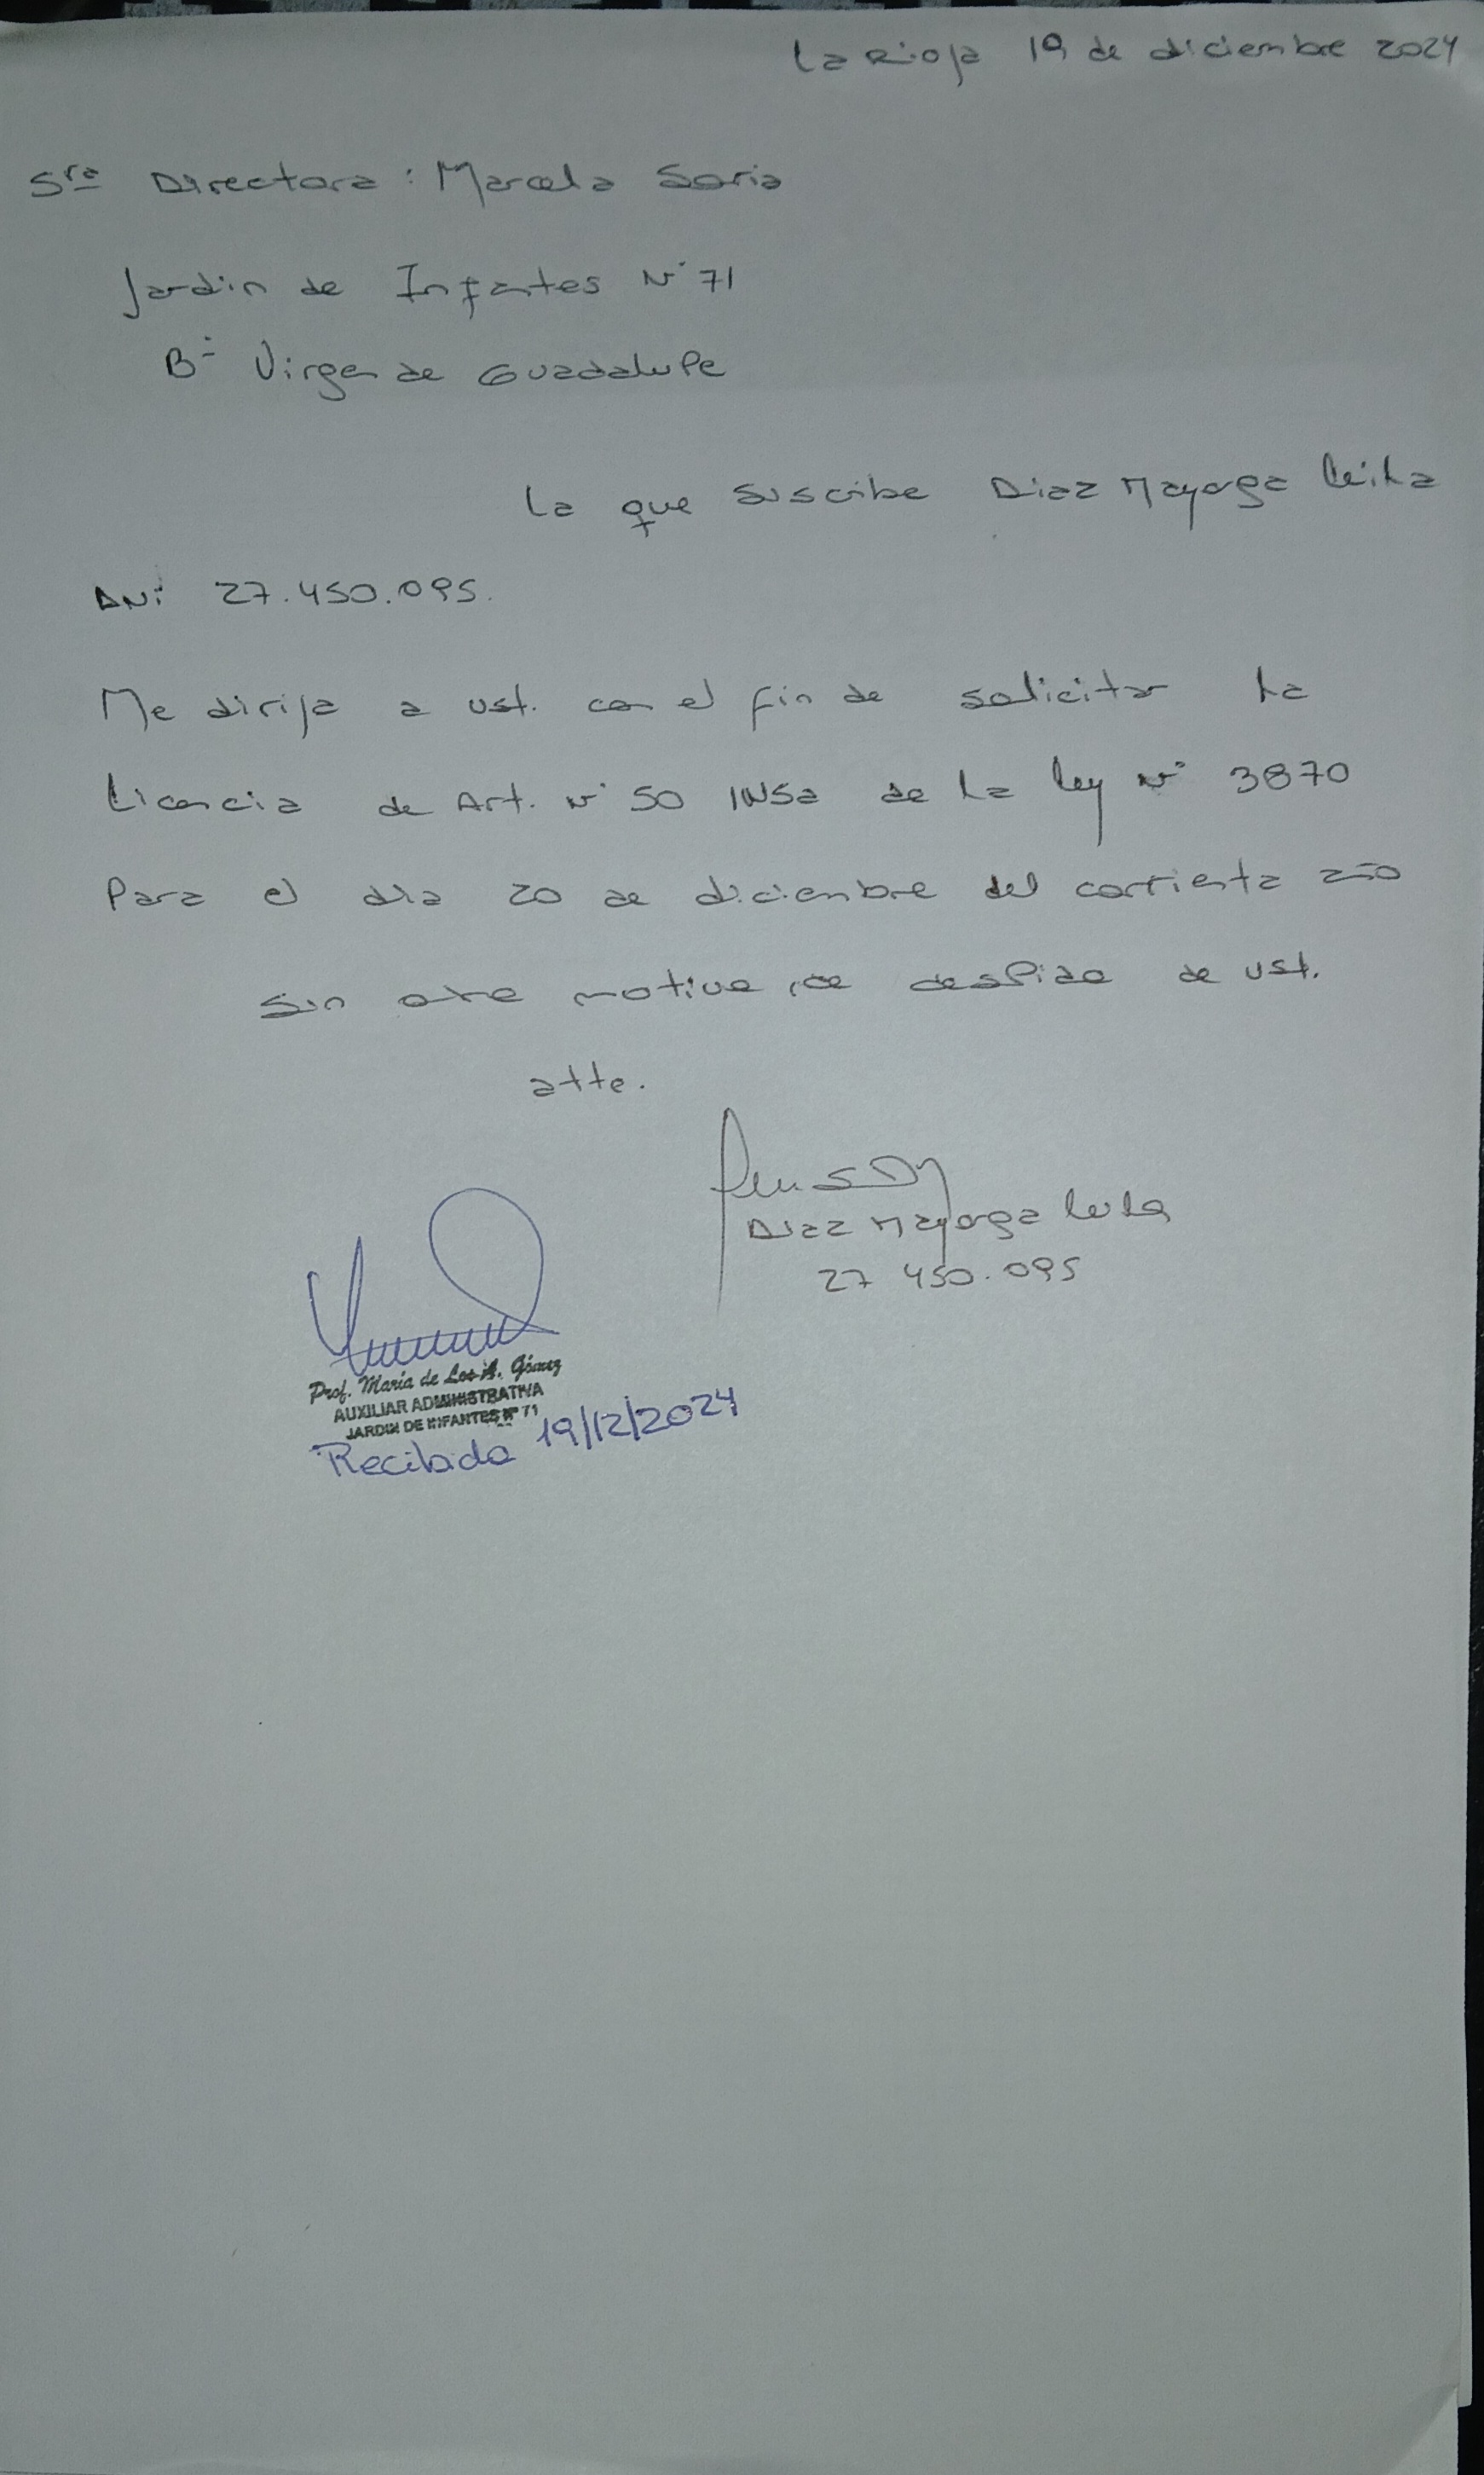 La Rioja 19 de diciembre 2024
Sra Directora: Marcela Soria
Jardin de Infantes N° 71
B° Virgen de Guadalupe
La que suscribe Diaz Mayorga Leila
DNi 27.450.095.
Me dirijo a ust. con el fin de solicitar la
Licencia de Art. N° 50 INSa de la ley N° 3870
Para el dia 20 de diciembre del corriente año
Sin otro motivo, se despide de ust.
atte.
Diaz Mayorga Leila
27 450.095
Prof. María de Los A. Gómez
AUXILIAR ADMINISTRATIVA
JARDIN DE INFANTES Nº 71
Recibido 19/12/2024